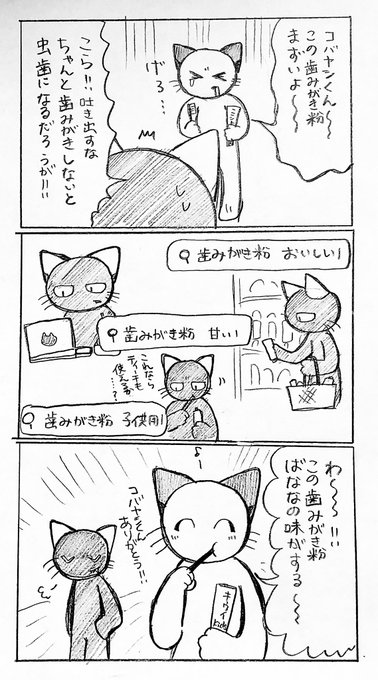 コバヤシくん〜
この歯みがき粉
まずいよ〜〜
げろ…
こら!! 吐き出すな
ちゃんと歯みがきしないと
虫歯になるだろうが!!
歯みがき粉 おいしい
歯みがき粉 甘い
これなら
ティーチも
使えるか
……?
歯みがき粉 子供用
わ〜〜!!
この歯みがき粉
ばななの味がする〜〜
コバヤシくん
ありがとう!!
キウイ